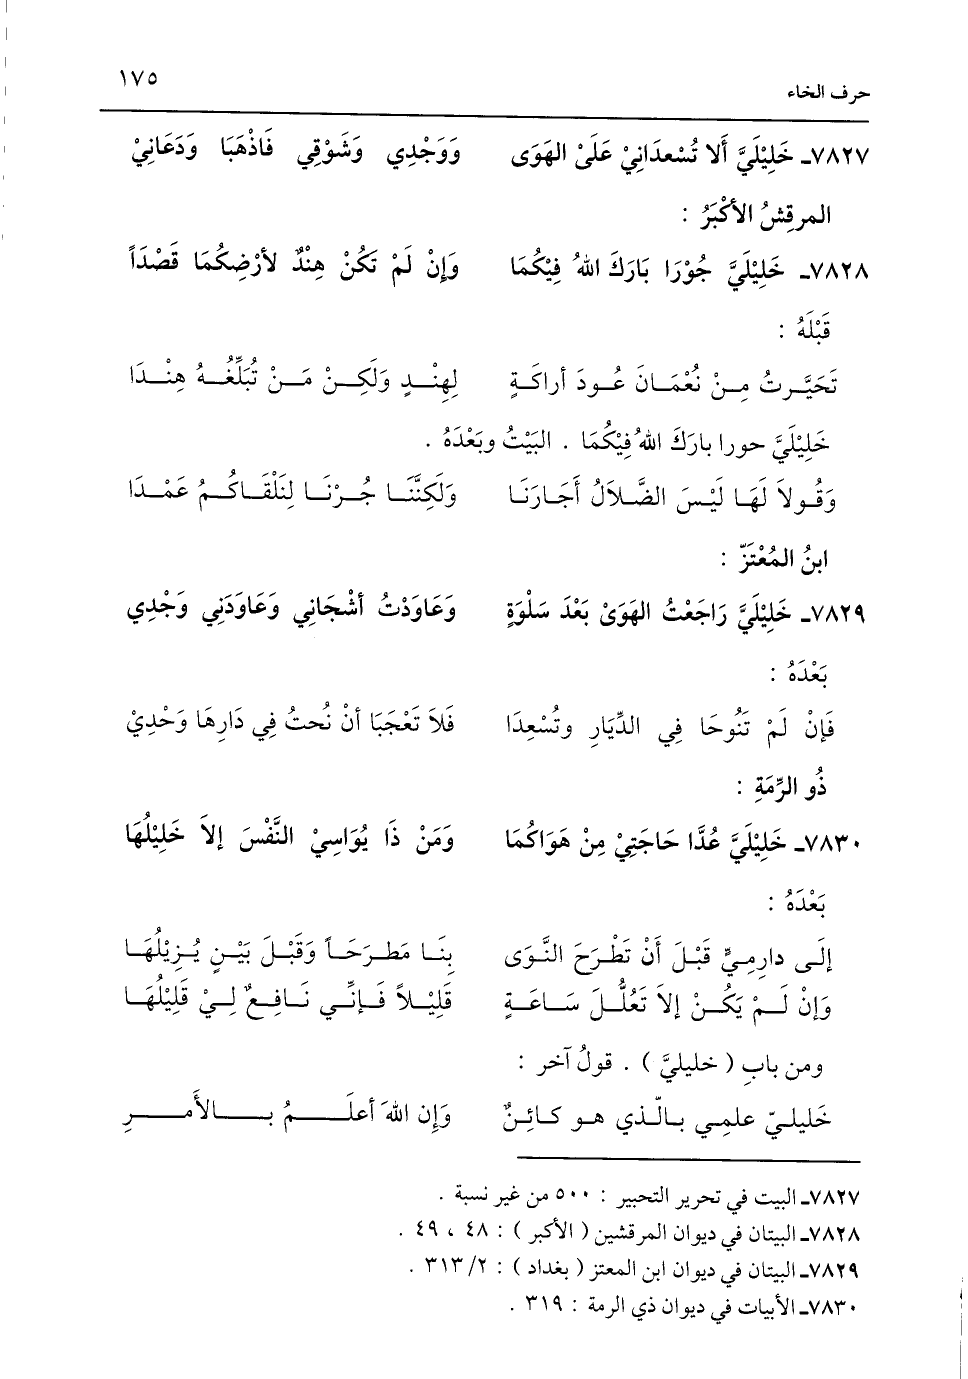 ١٧٥
حرف الخاء
٧٨٢٧ـ خَلِيْلَيَّ أَلا تُسْعدَانِيْ عَلَىْ الهَوَى وَوَجْدِي وَشَوْقِي فَاذْهَبَا وَدَعَانِيْ
المرقِشُ الأكْبَرُ :
٧٨٢٨ـ خَلِيْلَيَّ جُوْرَا بَارَكَ اللهُ فِيْكُمَا وَإِنْ لَمْ تَكُنْ هِنْدٌ لأرْضِكُمَا قَصْدَاً
قَبْلَهُ :
تَخَيَّرتُ مِنْ نُعْمَانَ عُودَ أراكَةٍ لِهِنْدٍ وَلَكِنْ مَنْ تُبَلِّغُهُ هِنْدَا
خَلِيْلَيَّ حورا بارَكَ اللهُ فِيْكُمَا . البَيْتُ وبَعْدَهُ .
وَقُولاَ لَهَا لَيْسَ الضَّلاَلُ أَجَارَنَا وَلَكِنَّنَا جُرْنَا لِنَلْقَاكُمُ عَمْدَا
ابنُ المُعْتَزّ :
٧٨٢٩ـ خَلِيْلَيَّ رَاجَعْتُ الهَوَىْ بَعْدَ سَلْوَةٍ وَعَاوَدْتُ أشْجَانِي وَعَاوَدَنِي وَجْدِي
بَعْدَهُ :
فَإنْ لَمْ تَنُوحَا فِي الدِّيَارِ وتُسْعِدَا فَلاَ تَعْجَبَا أنْ نُحتُ فِي دَارِهَا وَحْدِيْ
ذُو الرِّمَةِ :
٧٨٣٠ـ خَلِيْلَيَّ عُدَّا حَاجَتِيْ مِنْ هَوَاكُمَا وَمَنْ ذَا يُوَاسِيْ النَّفْسَ إلاَ خَلِيْلُهَا
بَعْدَهُ :
إلَى دارِميٍّ قَبْلَ أنْ تَطْرَحَ النَّوَى بِنَا مَطرَحَاً وَقَبْلَ بَيْنٍ يُزِيْلُهَا
وَإنْ لَمْ يَكُنْ إلاَ تَعُلُّلَ سَاعَةٍ قَلِيْلاً فَإنِّي نَافِعٌ لِيْ قَلِيْلُهَا
ومن بابِ ( خليليَّ ) . قولُ آخر :
خَليليّ علمِي بالّذي هو كائنٌ وَإن اللهَ أعلَمُ بالأَمرِ
٧٨٢٧ـ البيت في تحرير التحبير : ٥٠٠ من غير نسبة .
٧٨٢٨ـ البيتان في ديوان المرقشين ( الأكبر ) : ٤٨ ، ٤٩ .
٧٨٢٩ـ البيتان في ديوان ابن المعتز ( بغداد ) : ٣١٣/٢ .
٧٨٣٠ـ الأبيات في ديوان ذي الرمة : ٣١٩ .